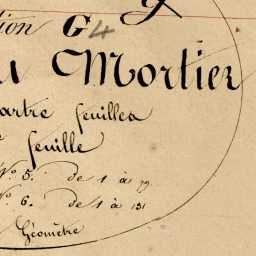 tion G4
Mortier
feuilles
feuille
No 5. de 1 à 79
No 6. de 1 à 131
Géomètre